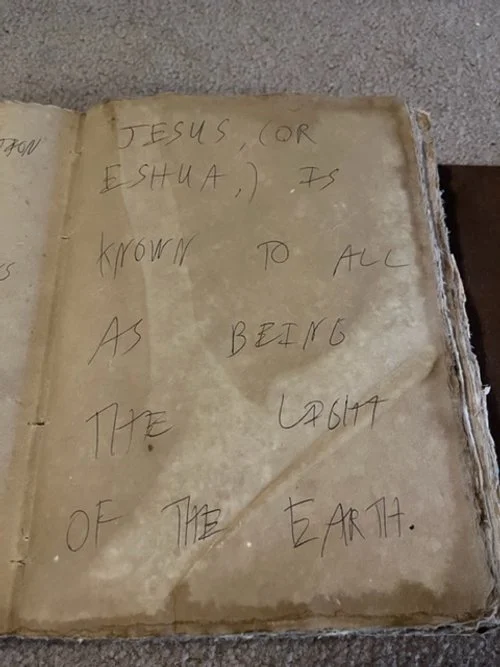 JESUS, (OR
ESHUA,) IS
KNOWN TO ALL
AS BEING
THE LIGHT
OF THE EARTH.